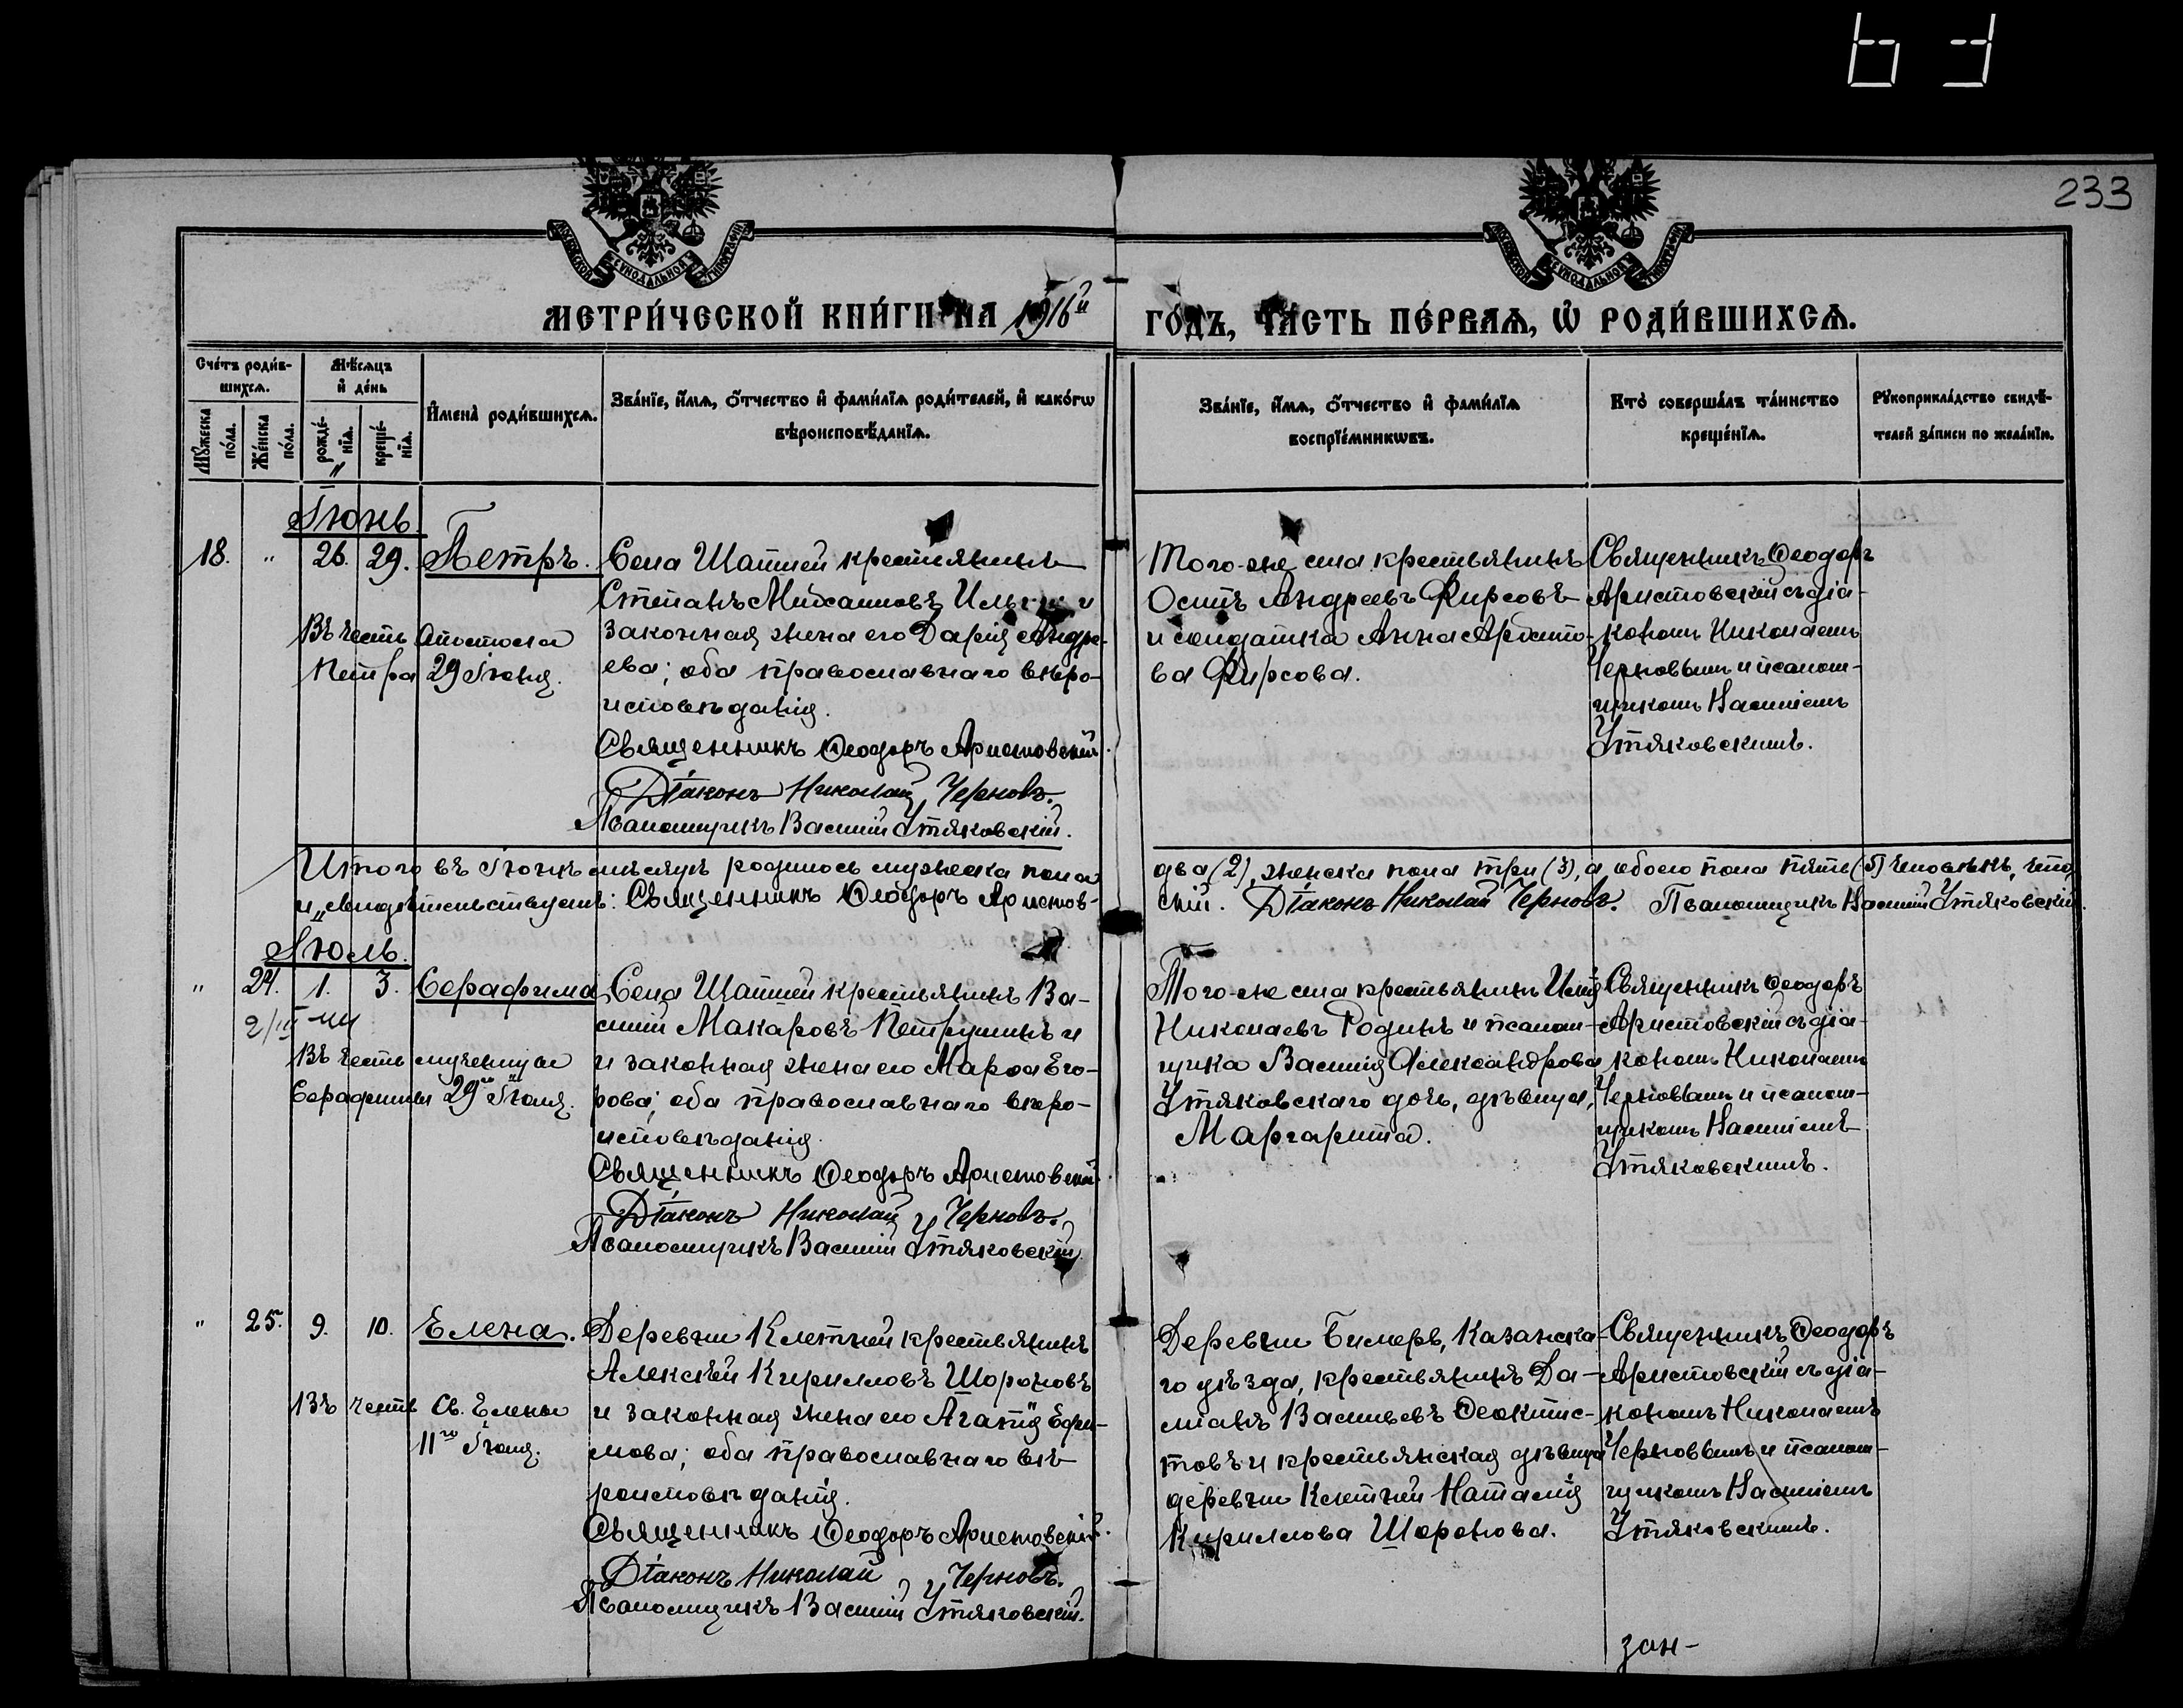 233
МОСКОВСКОЙ СѴНОДАЛЬНОЙ ТИПОГРАФІИ
МОСКОВСКОЙ СѴНОДАЛЬНОЙ ТИПОГРАФІИ
МЕТРИ́ЧЕСКОЙ КНИ́ГИ НА 1916й ГО́ДЪ, ЧА́СТЬ ПЕ́РВАѦ, Ѡ҆ РОДИ́ВШИХСѦ.
Сче́тъ роди́в-
шихсѧ.
Мꙋ́жеска по́ла.
Же́нска по́ла.
Мѣ́сѧцъ
и҆ де́нь
рожде́-
нїѧ.
креще́-
нїѧ.
И҆мена̀ роди́вшихсѧ.
Зва́нїе, и҆́мѧ, ѻ҆́тчество и҆ фамилїѧ роди́телей, и҆ како́гѡ
вѣроисповѣ́данїѧ.
Зва́нїе, и҆́мѧ, ѻ҆́тчество и҆ фами́лїѧ
воспрїе́мникѡвъ.
Кто̀ соверша́лъ та́инство
креще́нїѧ.
Рꙋкоприкла́дство свидѣ́-
телей за́писи по жела́нїю.
Іюнь.
18. " 26. 29. Петръ.
Въ честь Апостола
Петра 29 Іюня.
Села Шапшей крестьянинъ
Степанъ Михаиловъ и
законная жена его Дарія Андре-
ева; оба православнаго вѣро-
исповѣданія.
Священникъ Ѳеодоръ Аристовскій.
Діаконъ Николай Черновъ.
Псаломщикъ Василій Утяковскій.
Того-же села крестьянинъ
Осипъ Андреевъ Фирсовъ
и солдатка Анна
Фирсова.
Священникъ Ѳеодоръ
Аристовскій съ діа-
кономъ Николаемъ
Черновымъ и псалом-
щикомъ Василіемъ
Утяковскимъ.
Итого въ Іюнѣ мѣсяцѣ родилось мужеска пола два (2), женска пола три (3), а обоего пола пять (5) человѣкъ, что
и свидѣтельствуемъ: Священникъ Ѳеодоръ Аристов-скій. Діаконъ Николай Черновъ. Псаломщикъ Василій Утяковскій.
Іюль.
" 24. 1. 3. Серафима
Въ честь мученицы
Серафимы 29го Іюля.
Села Шапшей крестьянинъ Ва-
силій Макаровъ Петрушинъ и
и законная жена его Марѳа Его-
рова; оба православнаго вѣро-
исповѣданія.
Священникъ Ѳеодоръ Аристовскій.
Діаконъ Николай Черновъ.
Псаломщикъ Василій Утяковскій.
Того-же села крестьянинъ Илія
Николаевъ Родинъ и псалом-
щика Василія Александрова
Утяковскаго дочь, дѣвица,
Маргарита.
Священникъ Ѳеодоръ
Аристовскій съ діа-
кономъ Николаемъ
Черновымъ и псалом-
щикомъ Василіемъ
Утяковскимъ.
" 25. 9. 10. Елена.
Въ честь Св. Елены
11го Іюля.
Деревни Клетней крестьянинъ
Алексѣй Кирилловъ Шороновъ
и законная жена его Агапія Ефи-
мова; оба православнаго вѣ-
роисповѣданія.
Священникъ Ѳеодоръ Аристовскій.
Діаконъ Николай Черновъ.
Псаломщикъ Василій Утяковскій.
Деревни Бимерь, Казанска-
го уѣзда, крестьянинъ Да-
міанъ Васильевъ Ѳеоктис-
товъ и крестьянская дѣвица
деревни Клетней Наталія
Кириллова Шоронова.
Священникъ Ѳеодоръ
Аристовскій съ діа-
кономъ Николаемъ
Черновымъ и псалом-
щикомъ Василіемъ
Утяковскимъ.